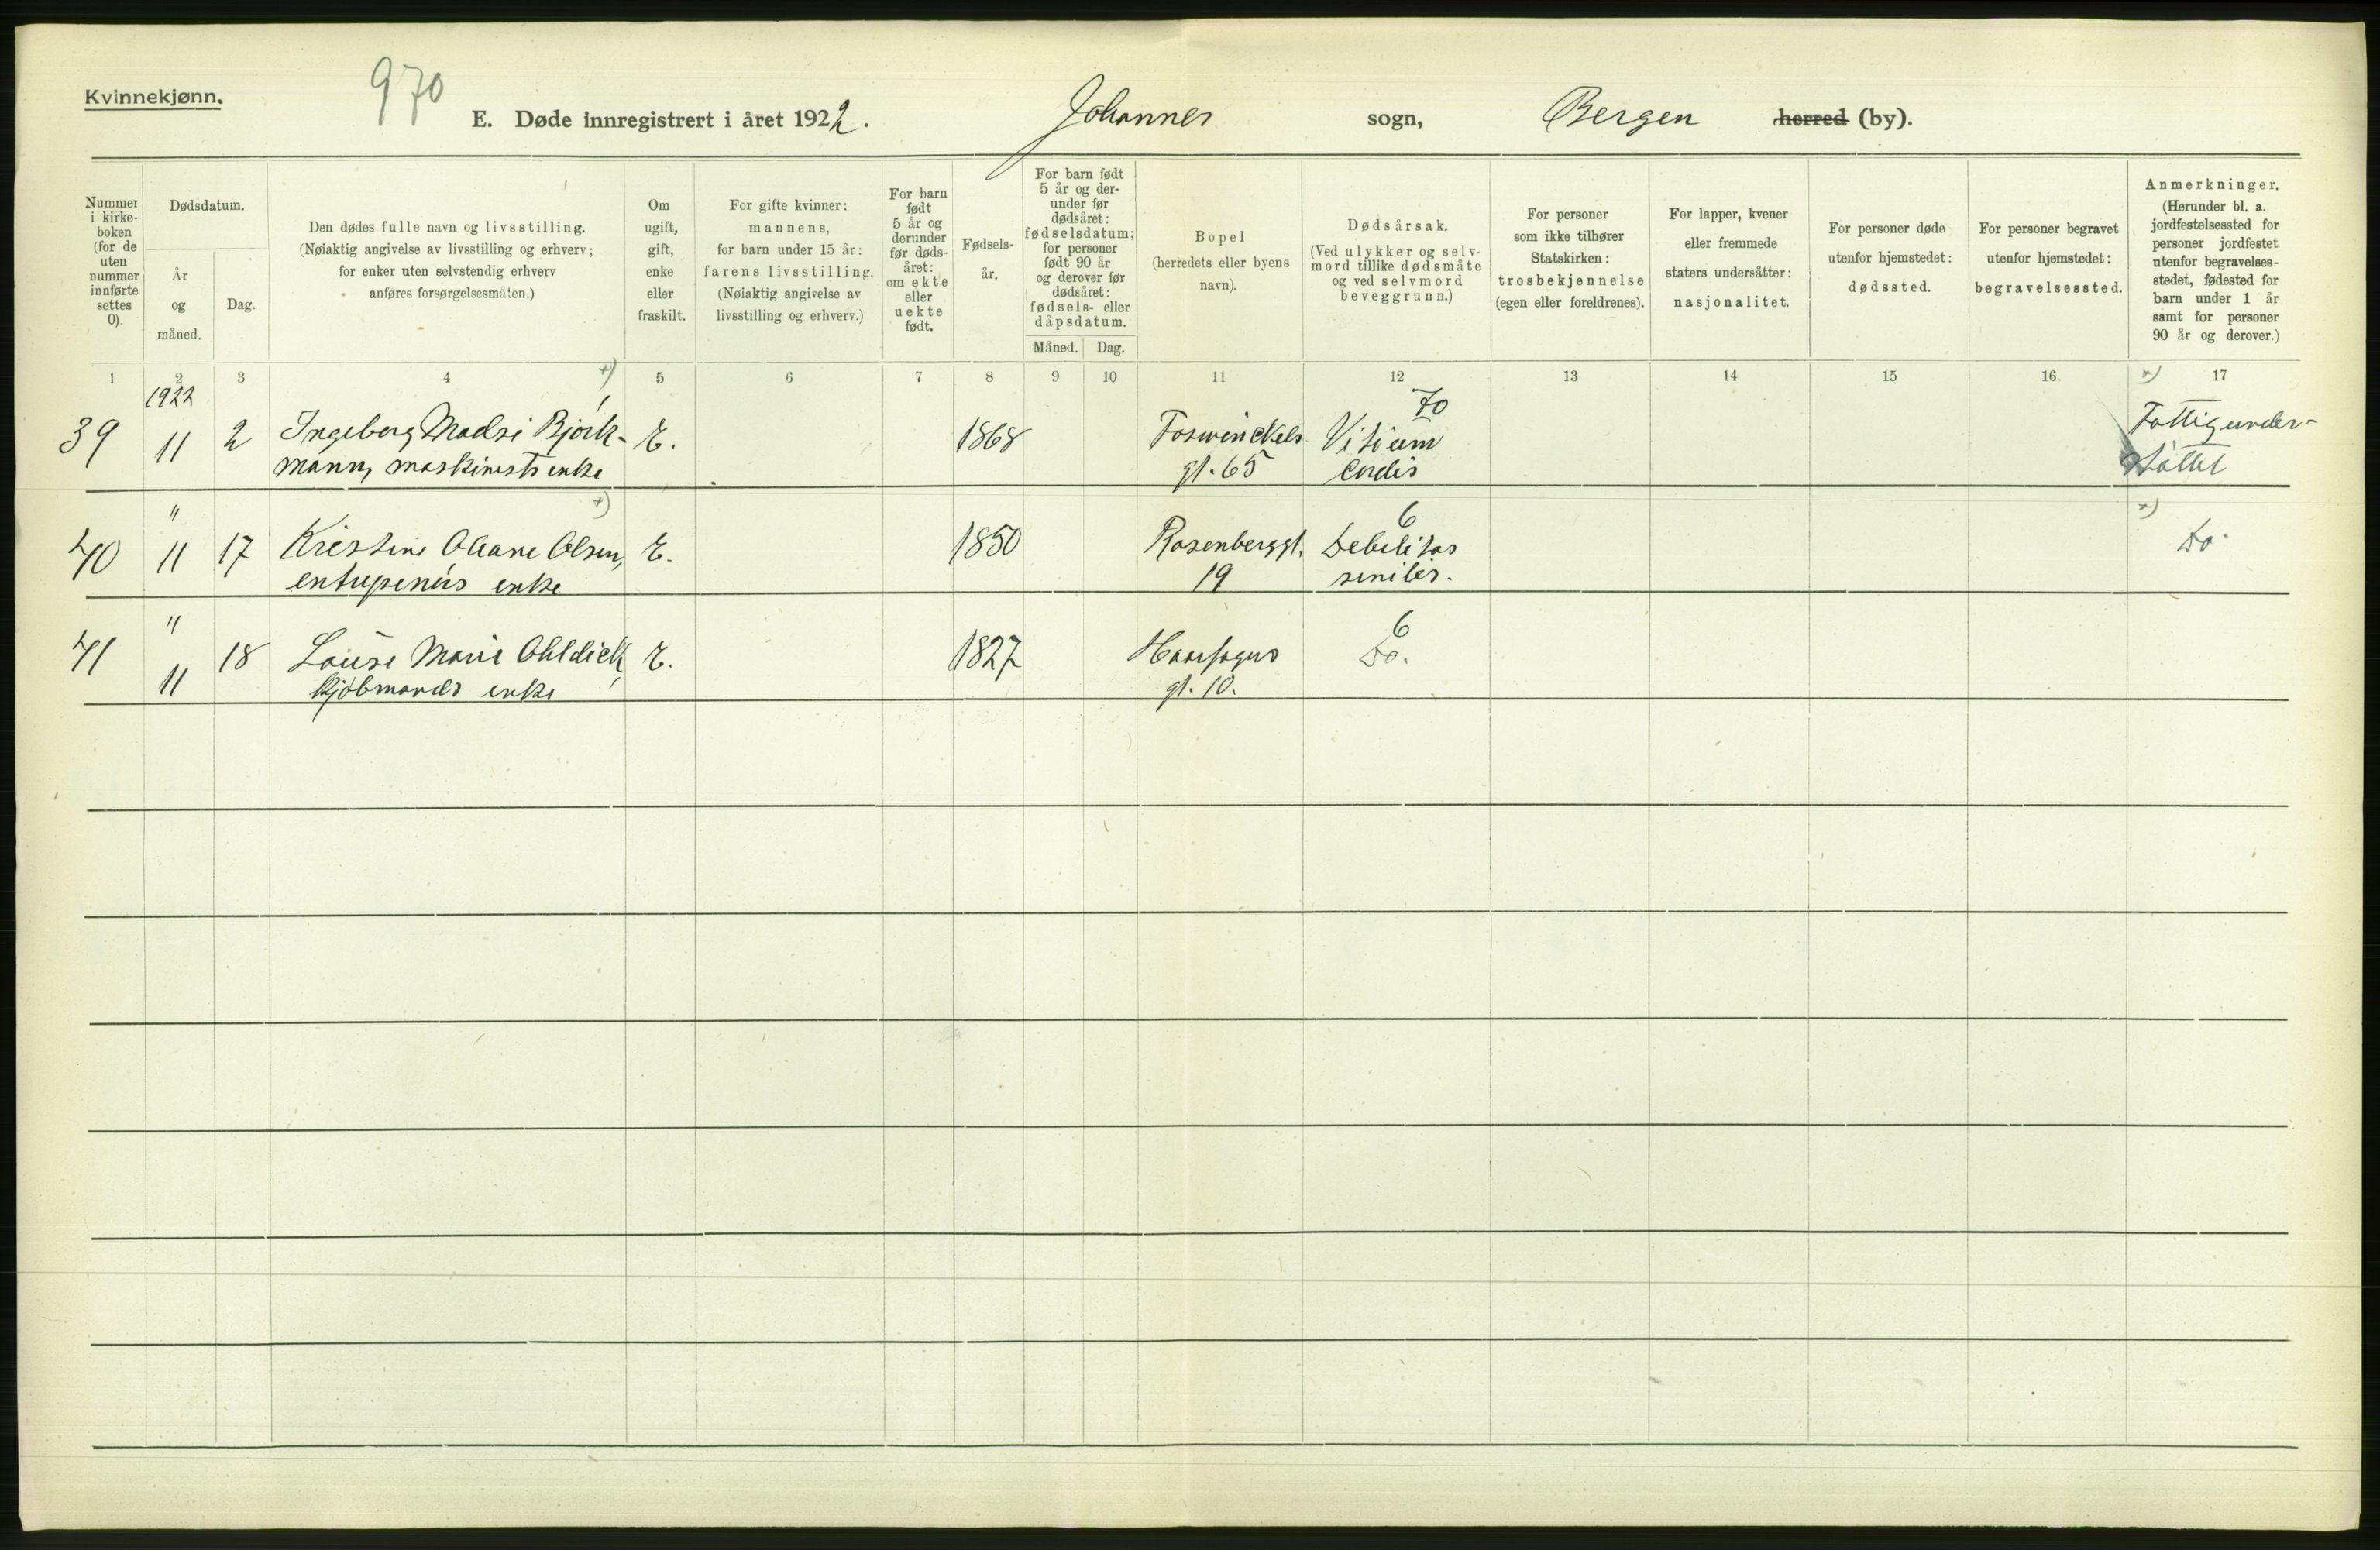 Kvinnekjønn.
970
E. Døde innregistrert i året 1922.
Johannes sogn,
Bergen herred (by).
Nummer i kirkeboken (for de uten nummer innførte settes 0).
Dødsdatum.
År og måned.
Dag.
Den dødes fulle navn og livsstilling.
(Nøiaktig angivelse av livsstilling og erhverv;
for enker uten selvstendig erhverv
anføres forsørgelsesmåten.)
Om ugift, gift, enke eller fraskilt.
For gifte kvinner:
mannens,
for barn under 15 år:
farens livsstilling.
(Nøiaktig angivelse av
livsstilling og erhverv.)
For barn født 5 år og derunder før dødsåret: om ekte eller uekte født.
Fødselsår.
For barn født
5 år og derunder før
dødsåret:
fødselsdatum;
for personer
født 90 år
og derover før
dødsåret:
fødsels- eller
dåpsdatum.
Måned. Dag.
Bopel
(herredets eller byens
navn).
Dødsårsak.
(Ved ulykker og selvmord tillike dødsmåte
og ved selvmord
beveggrunn.)
For personer
som ikke tilhører
Statskirken:
trosbekjennelse
(egen eller foreldrenes).
For lapper, kvener
eller fremmede
staters undersåtter:
nasjonalitet.
For personer døde
utenfor hjemstedet:
dødssted.
For personer begravet
utenfor hjemstedet:
begravelsessted.
Anmerkninger.
(Herunder bl. a.
jordfestelsessted for
personer jordfestet
utenfor begravelsesstedet, fødested for
barn under 1 år
samt for personer
90 år og derover.)
1 2 3 4 5 6 7 8 9 10 11 12 13 14 15 16 17
1922
39 11 2 Ingeborg Madsi Bjørk-
mann, maskinists enke
E. 1868
Foswinckels
gt. 65
70
Vitium
cordis
x)
Fattigunder-
støttet
40 " 11 17 Kristine Oleane Olsen,
enke
x)
E. 1850
Rosenberggt.
19
6
Debilitas
senilis.
x)
Do.
41 " 11 18 Louise Marie Ohldick,
kjøbmands enke
E. 1827
Haarfagres
gt. 10.
6
Do.